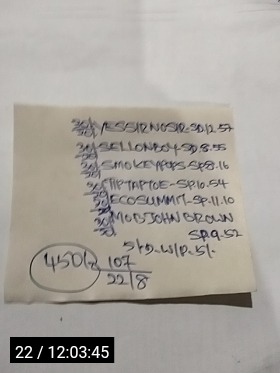 30/20 YESSIRNOSIR-SD12.57
30/20 SELLONBOY-SD8.55
30/20 SMOKEYPOPS-SP8.16
30/20 TIPTAPTOE-SP10.54
30/20 ECOSUMMIT-SP.11.10
30/20 MODJOHN BROWN
SP.9.52
5/D.W/P.5/.
450/2 107
22/8
22 / 12:03:45